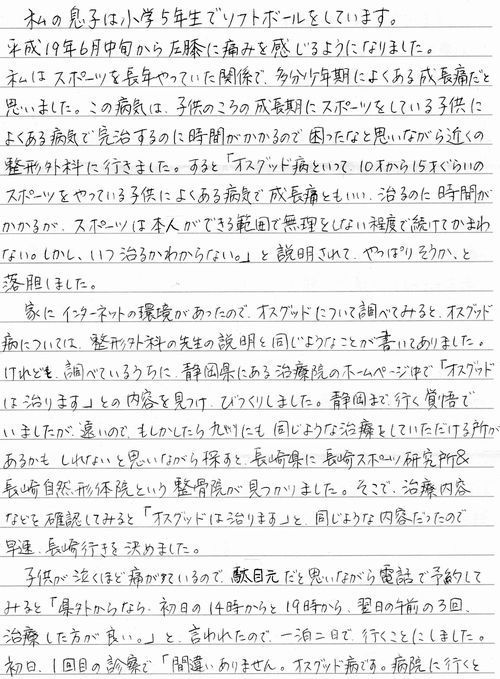 私の息子は小学5年生でソフトボールをしています。
平成19年6月中旬から左膝に痛みを感じるようになりました。
私はスポーツを長年やっていた関係で、多分少年期によくある成長痛だと
思いました。この病気は、子供のころの成長期にスポーツをしている子供に
よくある病気で完治するのに時間がかかるので困ったなと思いながら近くの
整形外科に行きました。すると「オスグッド病といって、10才から15才ぐらいの
スポーツをやっている子供によくある病気で成長痛ともいい、治るのに時間が
かかるが、スポーツは本人ができる範囲で無理をしない程度で続けてかまわ
ない。しかし、いつ治るかわからない。」と説明されて、やっぱりそうか、と
落胆しました。
家にインターネットの環境があったので、オスグッドについて調べてみると、オスグッド
病については、整形外科の先生の説明と同じようなことが書いてありました。
けれども、調べているうちに、静岡県にある治療院のホームページ中で「オスグッド
は治ります」との内容を見つけ、びっくりしました。静岡まで、行く覚悟で
いましたが、遠いので、もしかしたら九州にも同じような治療をしていただける所が
あるかもしれないと思いながら探すと、長崎県に長崎スポーツ研究所&
長崎自然形体院という整骨院が見つかりました。そこで、治療内容
などを確認してみると「オスグッドは治ります」と、同じような内容だったので
早速、長崎行きを決めました。
子供が泣くほど痛がっているので、駄目元だと思いながら電話で予約して
みると「県外からなら、初日の14時からと19時から、翌日の午前の3回、
治療した方が良い。」と、言われたので、一泊二日で、行くことにしました。
初日、1回目の診察で「間違いありません。オスグッド病です。病院に行くと